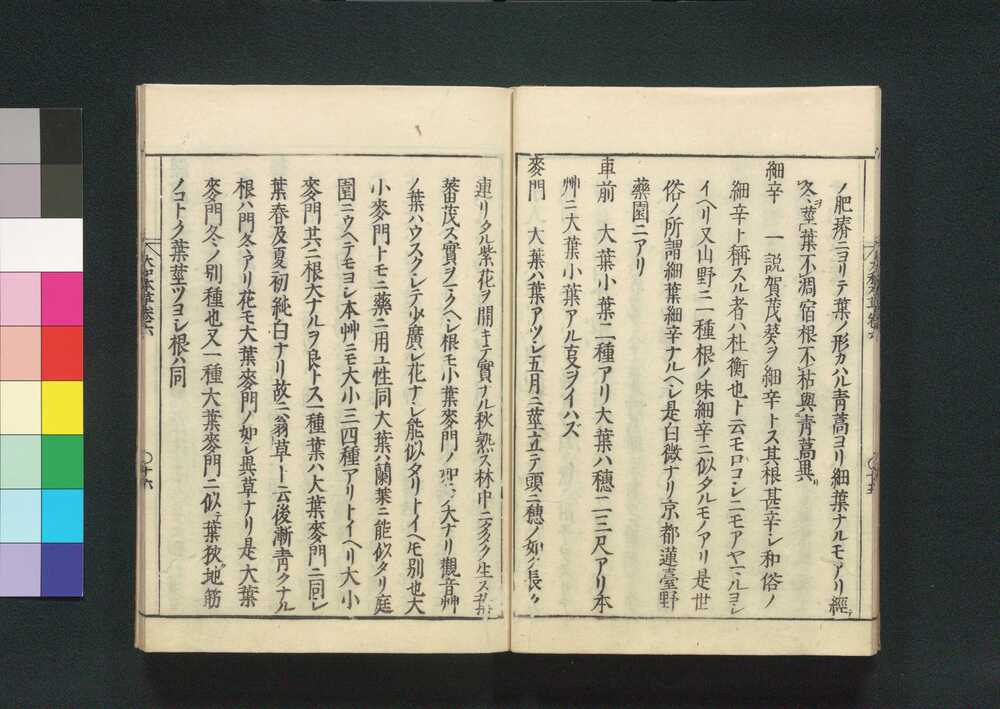 ノ肥瘠ニヨリテ葉ノ形カハル靑蒿ヨリ細葉ナルモアリ經
冬莖葉不凋宿根不枯與靑蒿異
細辛 一說賀茂葵ヲ細辛トス其根甚辛シ和俗ノ
細辛ト稱スル者ハ杜衡也ト云モロコシニモアヤマルヨシ
イヘリ又山野ニ一種根ノ味細辛ニ似タルモノアリ是世
俗ノ所謂細葉細辛ナルヘシ是白微ナリ京都蓮臺野
藥園ニアリ
車前 大葉小葉二種アリ大葉ハ穗二三尺アリ本
艸ニ大葉小葉アル叓ヲイハズ
麥門 大葉ハ葉アツシ五月ニ莖立テ頭ニ穗ノ如ク長ク
連リタル紫花ヲ開キテ實ナル秋熟ス林中ニ多ク生ス
蕃茂ス實ヲウヘシ根モ小葉麥門ノ如ク大ナリ觀音艸
ノ葉ハウスクシテ少廣シ花ナシ能似タリトイヘモ別也大
小麥門トモニ藥ニ用ユ性同大葉ハ蘭葉ニ能似タリ庭
園ニウヘテモヨシ本艸ニモ大小三四種アリトイヘリ大小
麥門共ニ根大ナルヲ良トス一種葉ハ大葉麥門ニ同シ
葉春及夏初純白ナリ故ニ翁草ト云後漸靑クナル
根ハ門冬アリ花モ大葉麥門ノ如シ異草ナリ是大葉
麥門冬ノ別種也又一種大葉麥門ニ似テ葉狹地筋
ノコトク葉莖ツヨシ根ハ同
大和本草卷六
十六